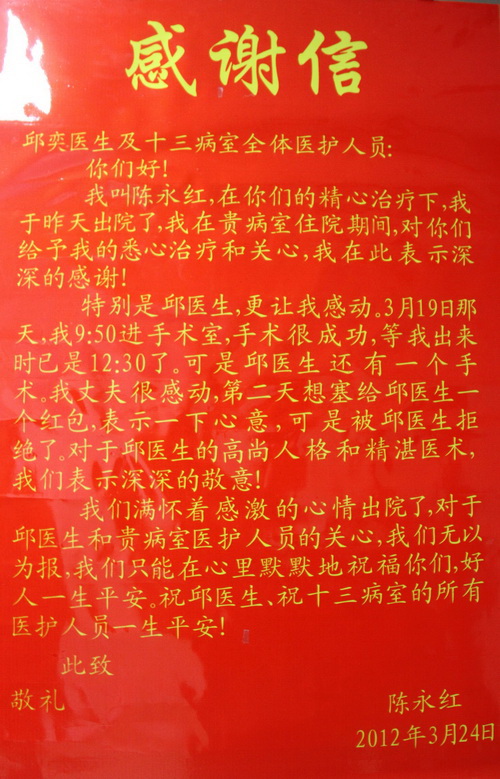 感谢信
邱奕医生及十三病室全体医护人员:
你们好!
我叫陈永红,在你们的精心治疗下,我
于昨天出院了,我在贵病室住院期间,对你们
给予我的悉心治疗和关心,我在此表示深
深的感谢!
特别是邱医生,更让我感动。3月19日那
天,我9:50进手术室,手术很成功,等我出来
时已是12:30了。可是邱医生还有一个手
术。我丈夫很感动,第二天想塞给邱医生一
个红包,表示一下心意,可是被邱医生拒
绝了。对于邱医生的高尚人格和精湛医术,
我们表示深深的敬意!
我们满怀着感激的心情出院了,对于
邱医生和贵病室医护人员的关心,我们无以
为报,我们只能在心里默默地祝福你们,好
人一生平安。祝邱医生、祝十三病室的所有
医护人员一生平安!
此致
敬礼
陈永红
2012年3月24日